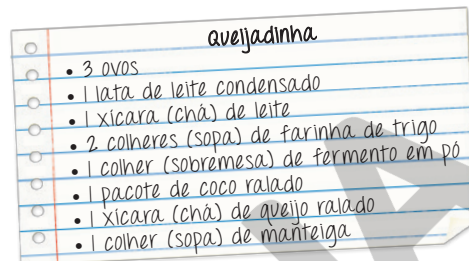 Queijadinha
• 3 ovos
• 1 lata de leite condensado
• 1 xícara (chá) de leite
• 2 colheres (sopa) de farinha de trigo
• 1 colher (sobremesa) de fermento em pó
• 1 pacote de coco ralado
• 1 xícara (chá) de queijo ralado
• 1 colher (sopa) de manteiga